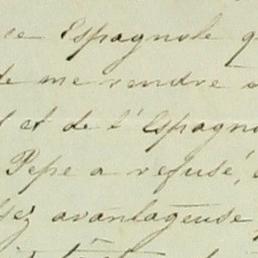 se Espagnole q
de me rendre
et de l'Espagno
Pepe a refusé,
avantageuse,